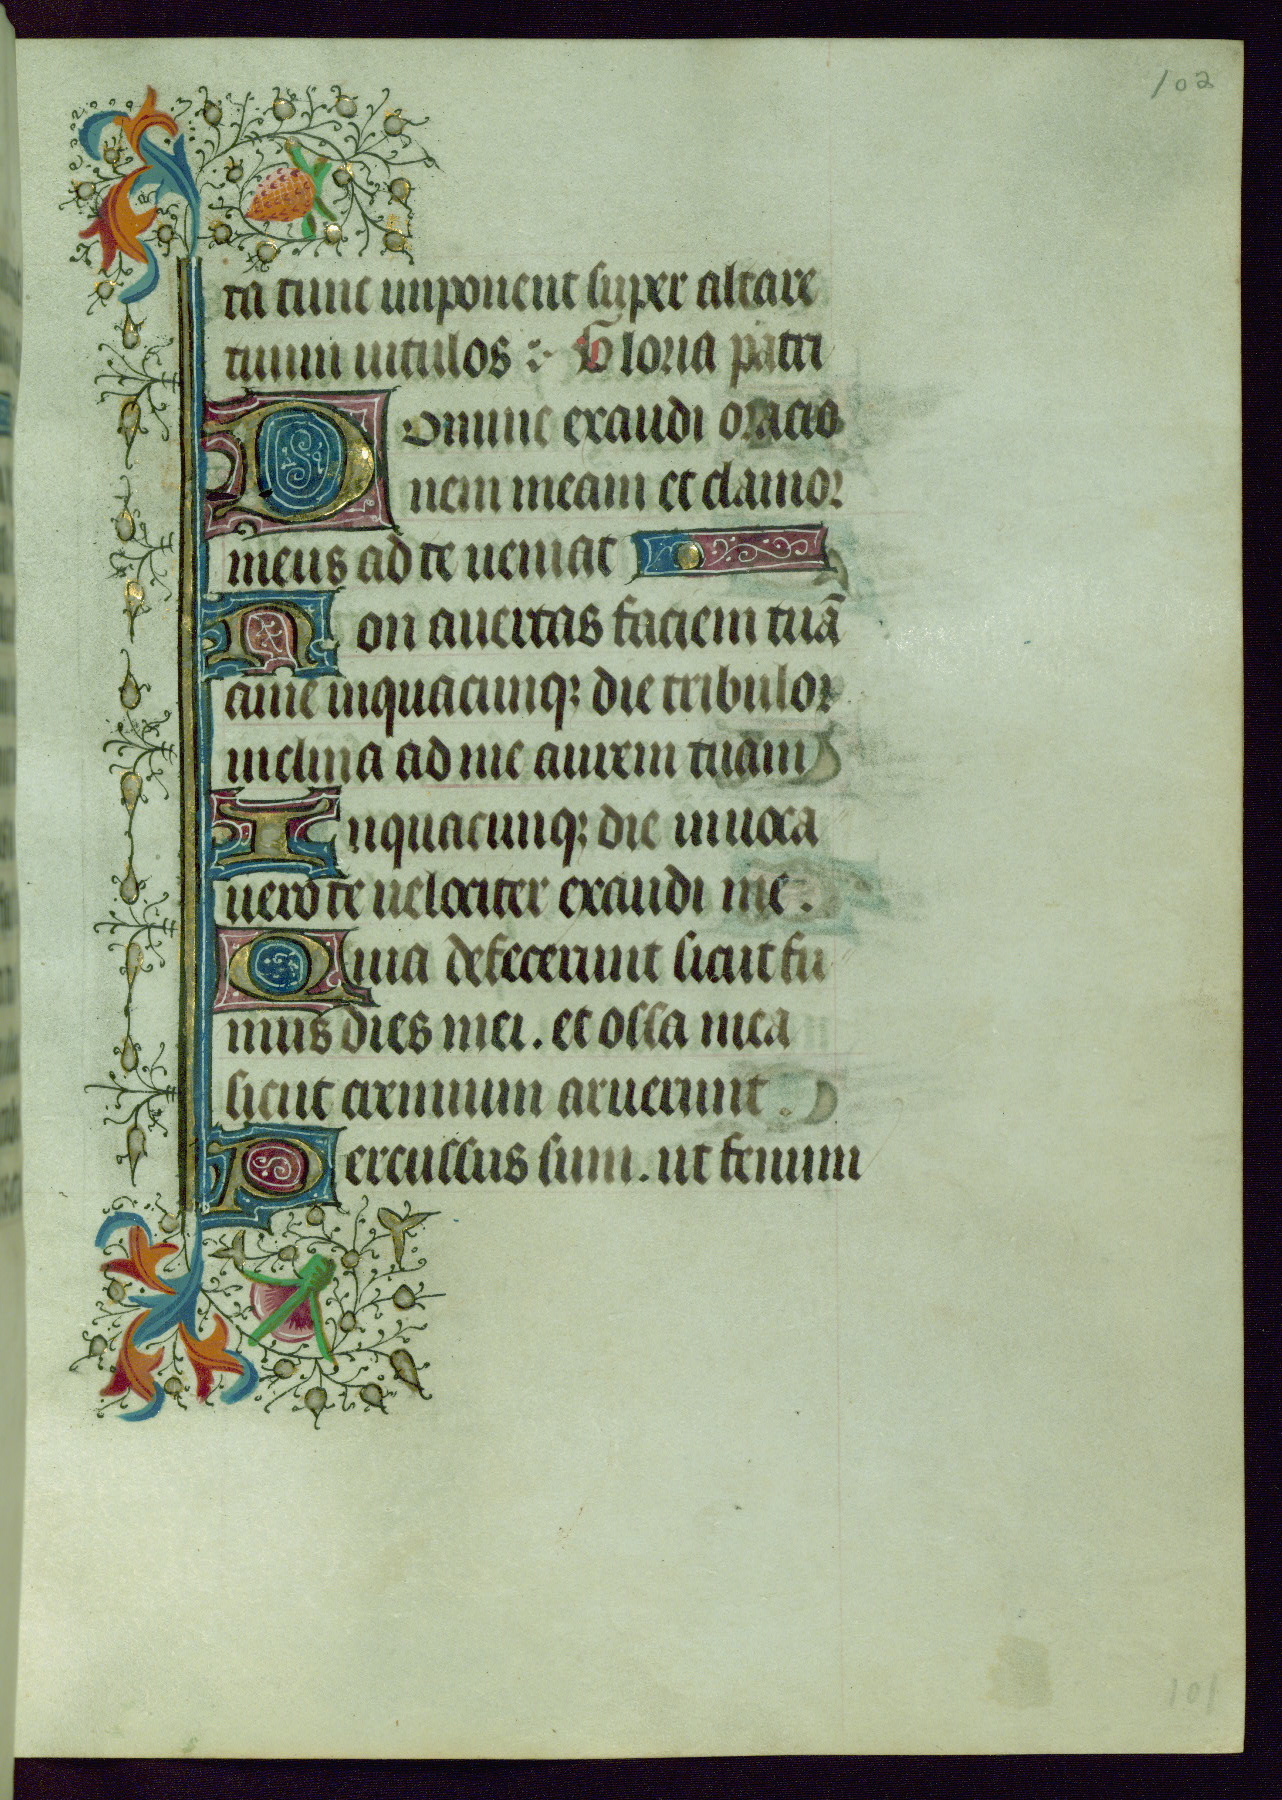 102
ta tunc imponent super altare
tuum uitulos : Gloria patri
Domine exaudi oracio
nem meam et clamor
meus ad te ueniat
Non auertas faciem tuā
ame inquacunqꝫ die tribulor
inclina ad me aurem tuam
Inquacunqꝫ die inuoca
uero te uelociter exaudi me.
Quia defecerunt sicut fu
mus dies mei. et ossa mea
sicut cremium aruerunt.
Percussus sum. ut fenum
101